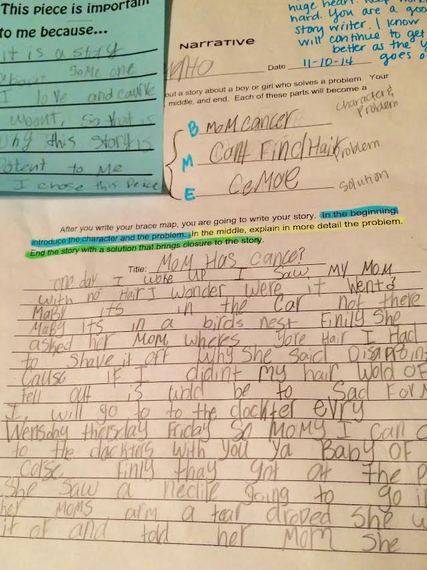 This piece is important
to me because...
it is a story
about some one
I love and
wount, so that is
Why this Story is
Potent to Me
I chose this Peace
huge heart
hard. You are a
story writer. I know
will continue to get
better as the y
goes o
Narrative
Date 11-10-14
out a story about a boy or girl who solves a problem. Your
middle, and end. Each of these parts will become a
character &
Problem
B MoM cancer
M Cant Find Hair
Problem
E CeMoe
Solution
After you write your brace map, you are going to write your story. In the beginning,
introduce the character and the problem. In the middle, explain in more detail the problem.
End the story with a solution that brings closure to the story.
Title: MoM Has cance?
one day I woke up I Saw MY Mom
with no Hair I wonder were it went?
MaBy its in the car not there
MaBy its in a birds nest Finily She
asked her MoM wheres yore Hair I Had
to Shave it off Why She Said
Cause IF I didint my hair wold OF
fell out is wold be to Sad For M
I will go to to the dockter evry
Wensday thersday Friday So MoMy I can
to the dackters with you Ya BaBy OF
Corse. Finly thay got at the P
She Saw a neclie going to go i
her MoMs arM a tear droped She w
it of and told her MoM She